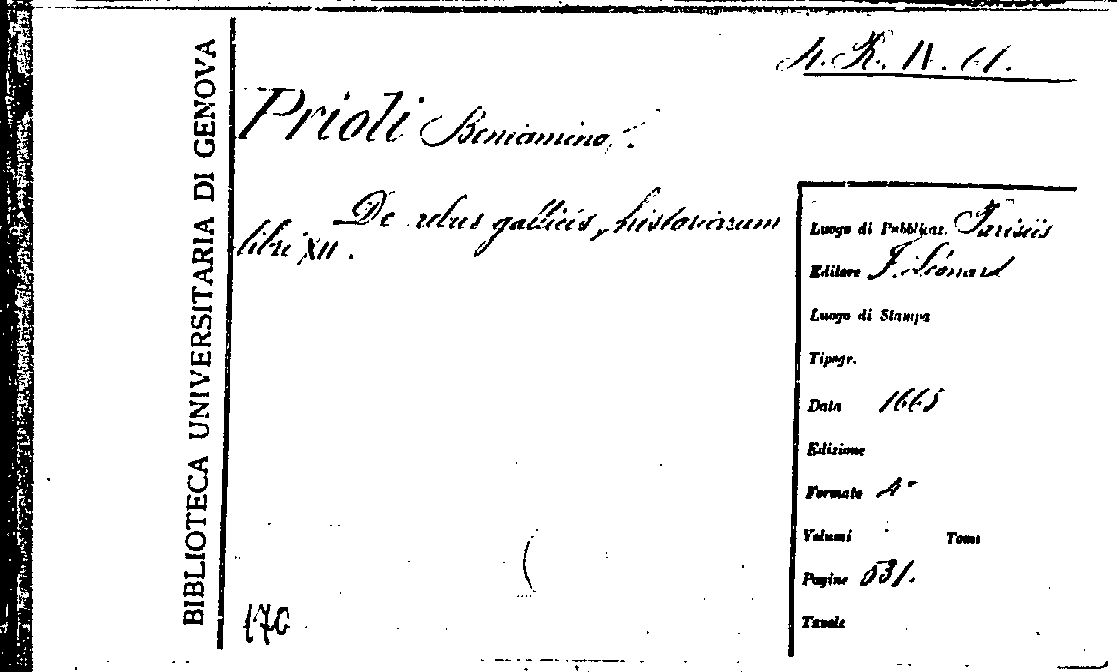 BIBLIOTECA UNIVERSITARIA DI GENOVA
4. K. IV. 61.
Prioli Beniamino.
De rebus gallicis, historiarum
libri XII.
Luogo di Pubblicaz. Parisiis
Editore F. Léonard
Luogo di Stampa
Tipogr.
Data 1665
Edizione
Formato 4°
Volumi Tomi
Pagine 531.
Tavole
170